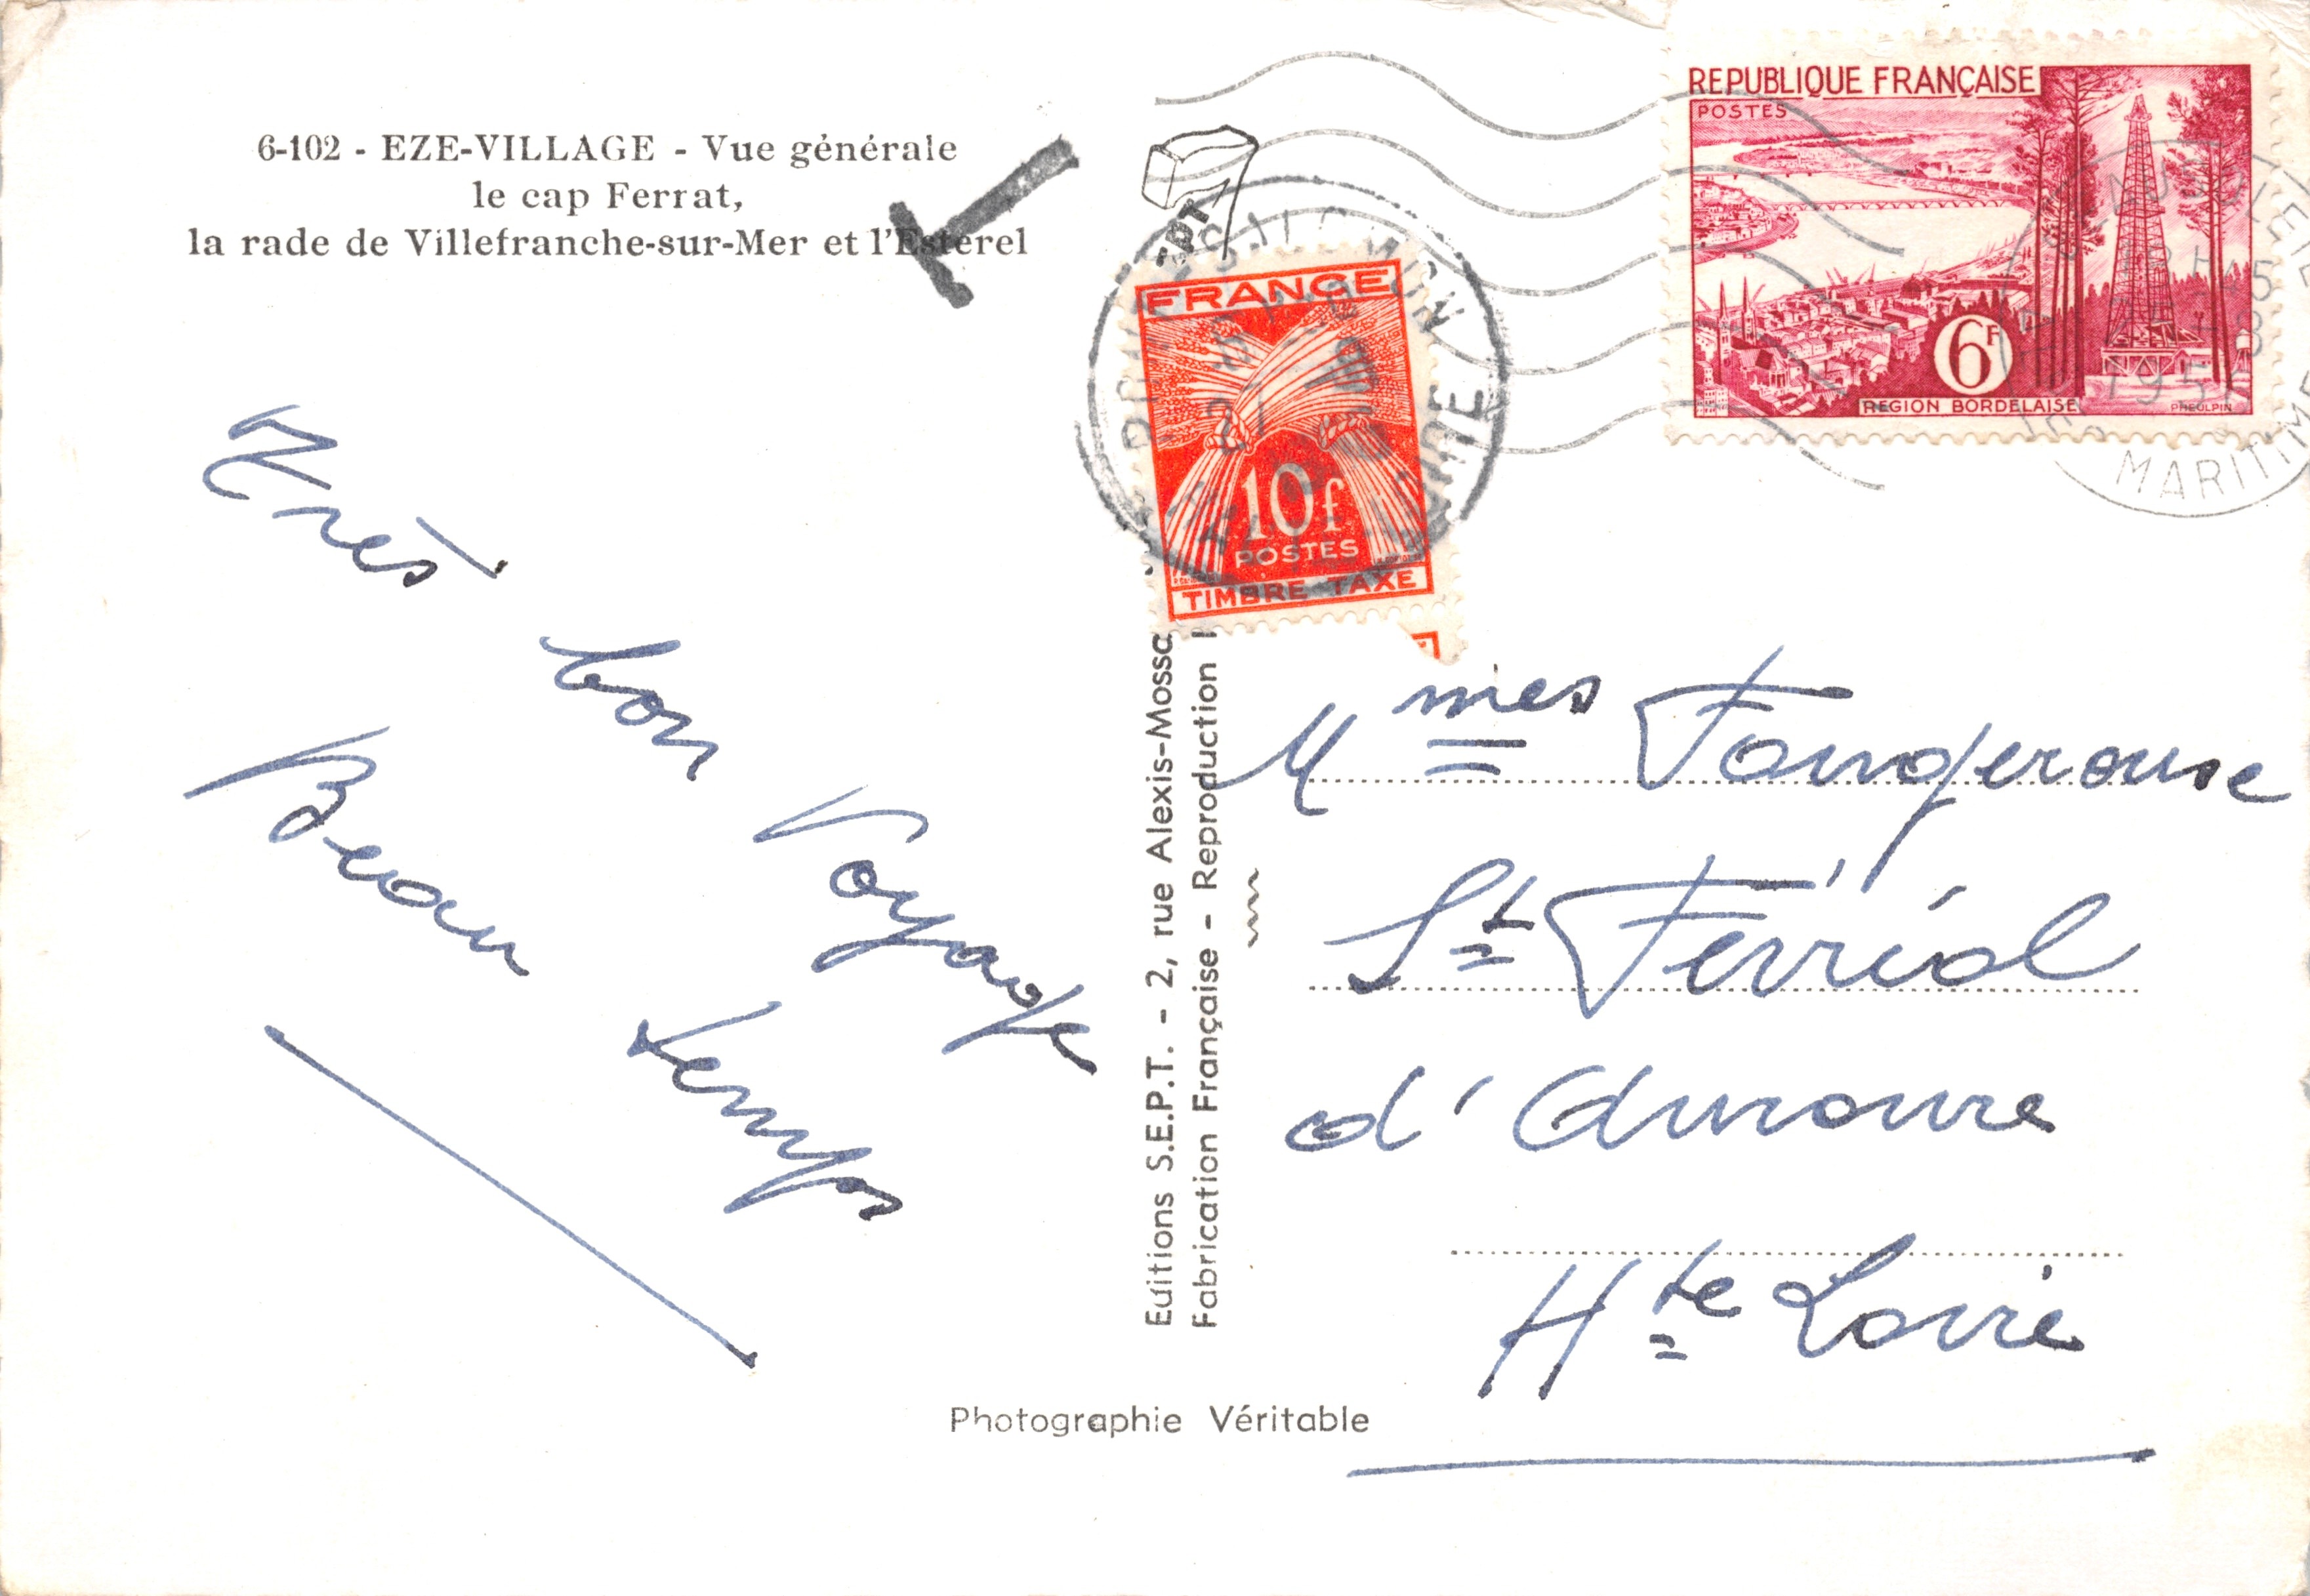 6-102 - EZE-VILLAGE - Vue générale
le cap Ferrat,
la rade de Villefranche-sur-Mer et l'Esterel
Très bon Voyage
Beau temps
Editions S.E.P.T. - 2, rue Alexis-Mossa
Fabrication Française - Reproduction
EDT
FRANCE
10f
POSTES
TIMBRE TAXE
HAUTE LOIRE
REPUBLIQUE FRANÇAISE
POSTES
6F
REGION BORDELAISE
PHEULPIN
MARITIMES
Mmes Faugerouse
St Ferréol
d'Auroure
Hte Loire
Photographie Véritable